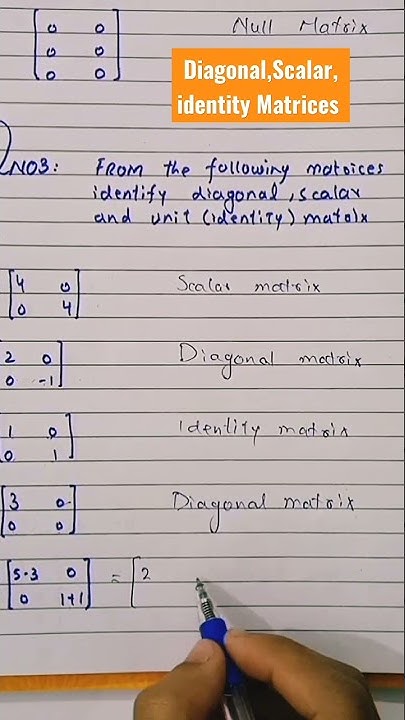 0 0 Null Matrix
0 0
0 0
Diagonal,Scalar,
identity Matrices
NO3: FROM the following matrices
identify diagonal, scalar
and unit (identity) matrix
4 0 Scalar matrix
0 4
2 0 Diagonal matrix
0 -1
1 0 Identity matrix
0 1
3 0 Diagonal matrix
0 0
5-3 0 = [2
0 1+1